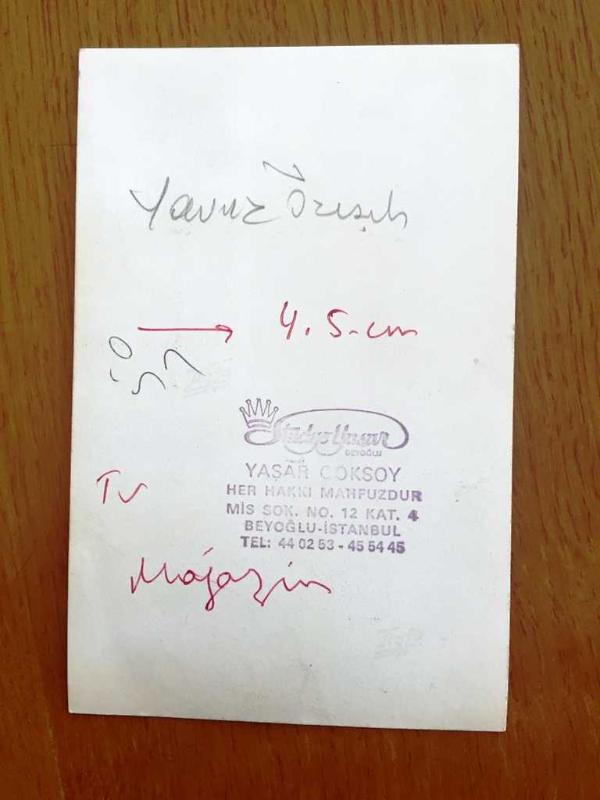 Yavuz Özışık
4.5-cm
Stüdyo Yaşar
BEYOĞLU
YAŞAR ÇOKSOY
HER HAKKI MAHFUZDUR
MİS SOK. NO. 12 KAT. 4
BEYOĞLU-İSTANBUL
TEL: 44 02 63 - 45 54 45
TV
Mağazin